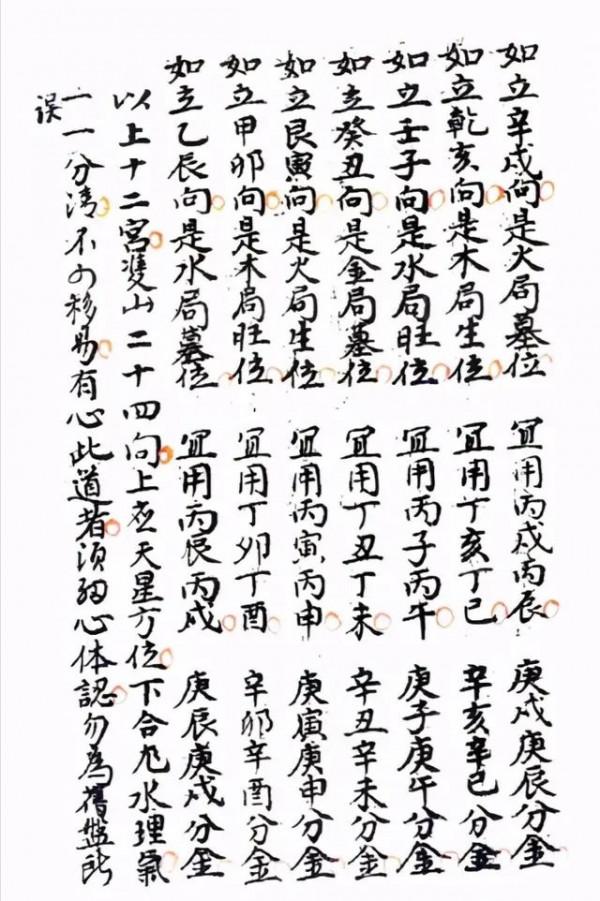 如立辛戍向是火局墓位 宜用丙戍丙辰 庚戍庚辰分金
如立乾亥向是木局生位 宜用丁亥丁巳 辛亥辛巳分金
如立壬子向是水局旺位 宜用丙子丙午 庚子庚午分金
如立癸丑向是金局墓位 宜用丁丑丁未 辛丑辛未分金
如立艮寅向是火局生位 宜用丙寅丙申 庚寅庚申分金
如立甲卯向是木局旺位 宜用丁卯丁酉 辛卯辛酉分金
如立乙辰向是水局墓位 宜用丙辰丙戍 庚辰庚戍分金
以上十二宮雙山二十四向上应天星方位下合九水理氣
一一分清不可移易有心此道者須細心体認勿為舊盤所
误